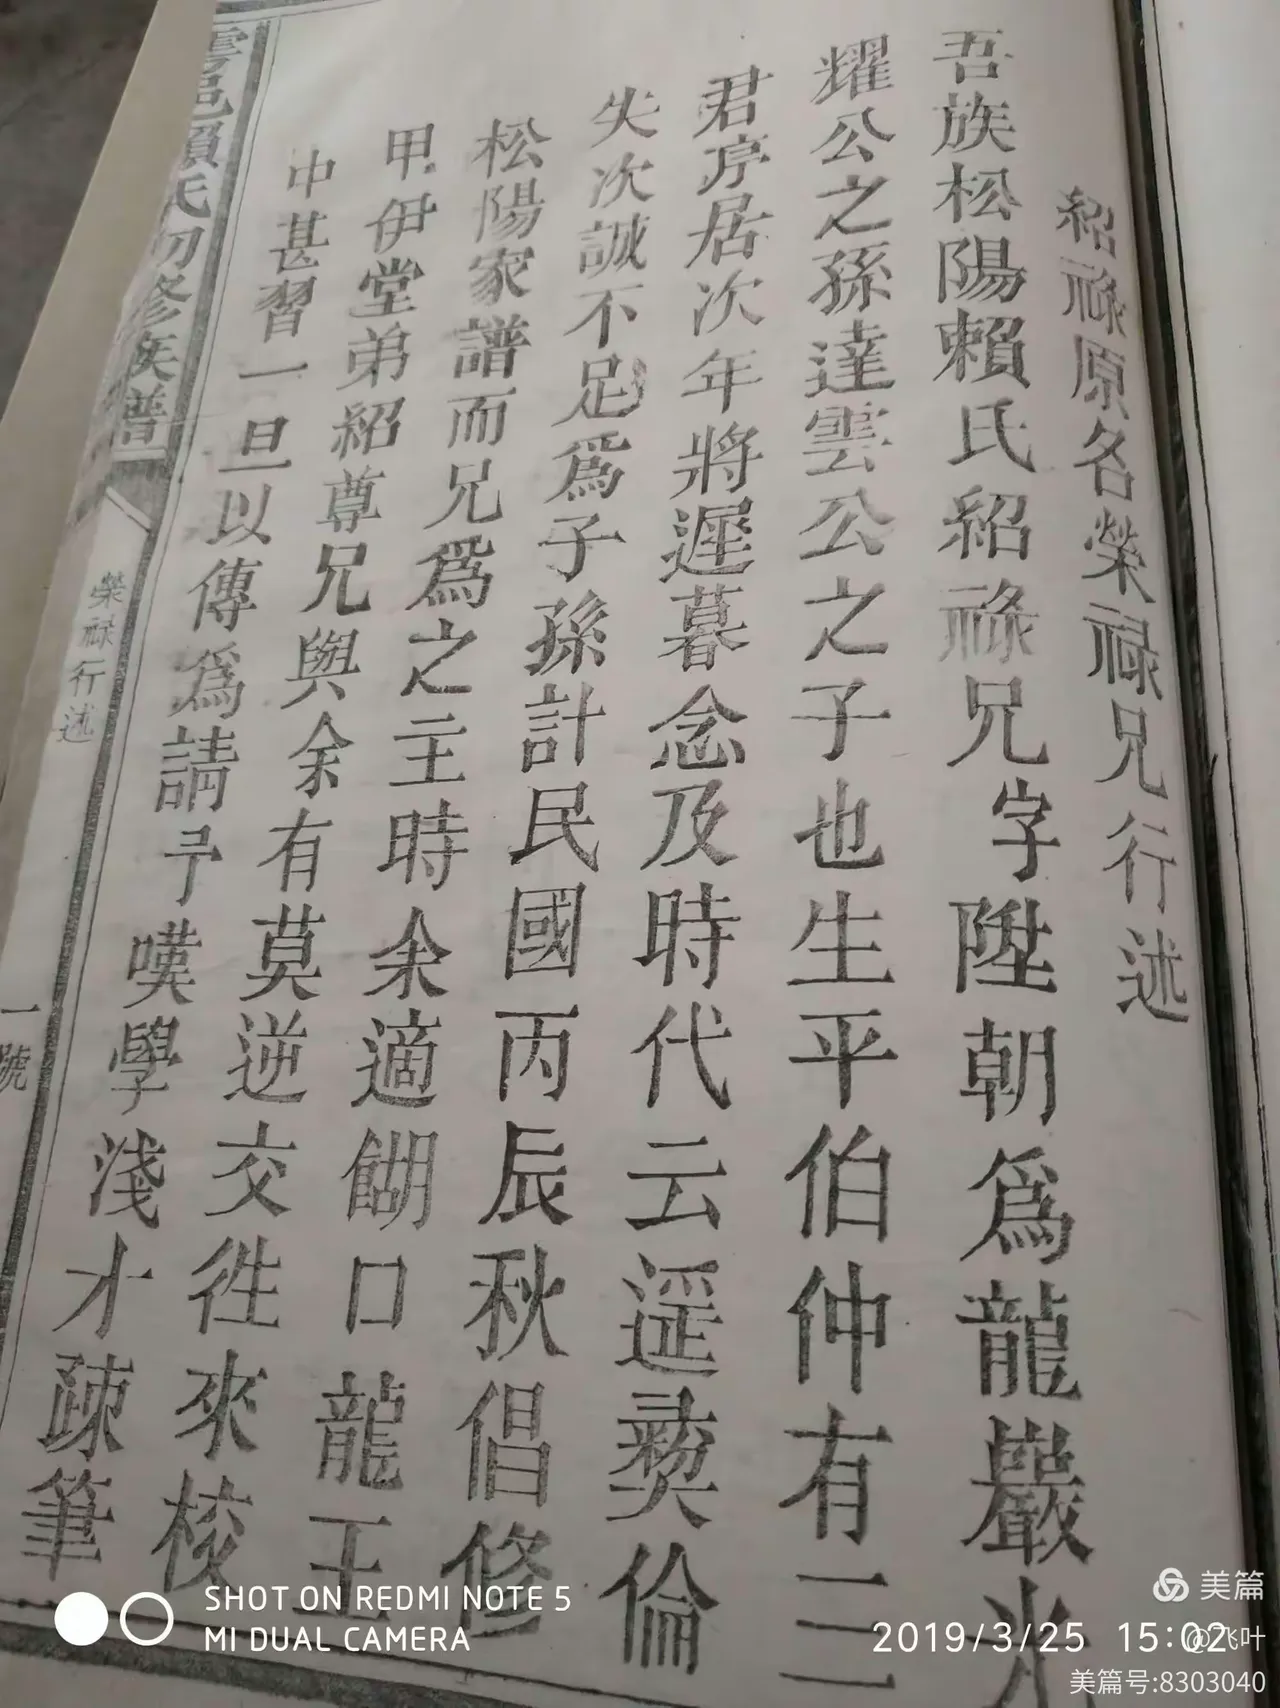 紹祿原名榮祿兄行述
吾族松陽賴氏紹祿兄字陞朝爲龍巖水
耀公之孫達雲公之子也生平伯仲有三
君序居次年將遲暮念及時代云遥彛倫
失次誠不足爲子孫計民國丙辰秋倡修
松陽家譜而兄爲之主時余適餬口龍王
甲伊堂弟紹尊兄與余有莫逆交徃來校
中甚習一旦以傳爲請予嘆學淺才疎筆
雲邑賴氏初修族譜
榮祿行述
一號
SHOT ON REDMI NOTE 5
MI DUAL CAMERA
2019/3/25 15:02
美篇
@飞叶
美篇号:8303040